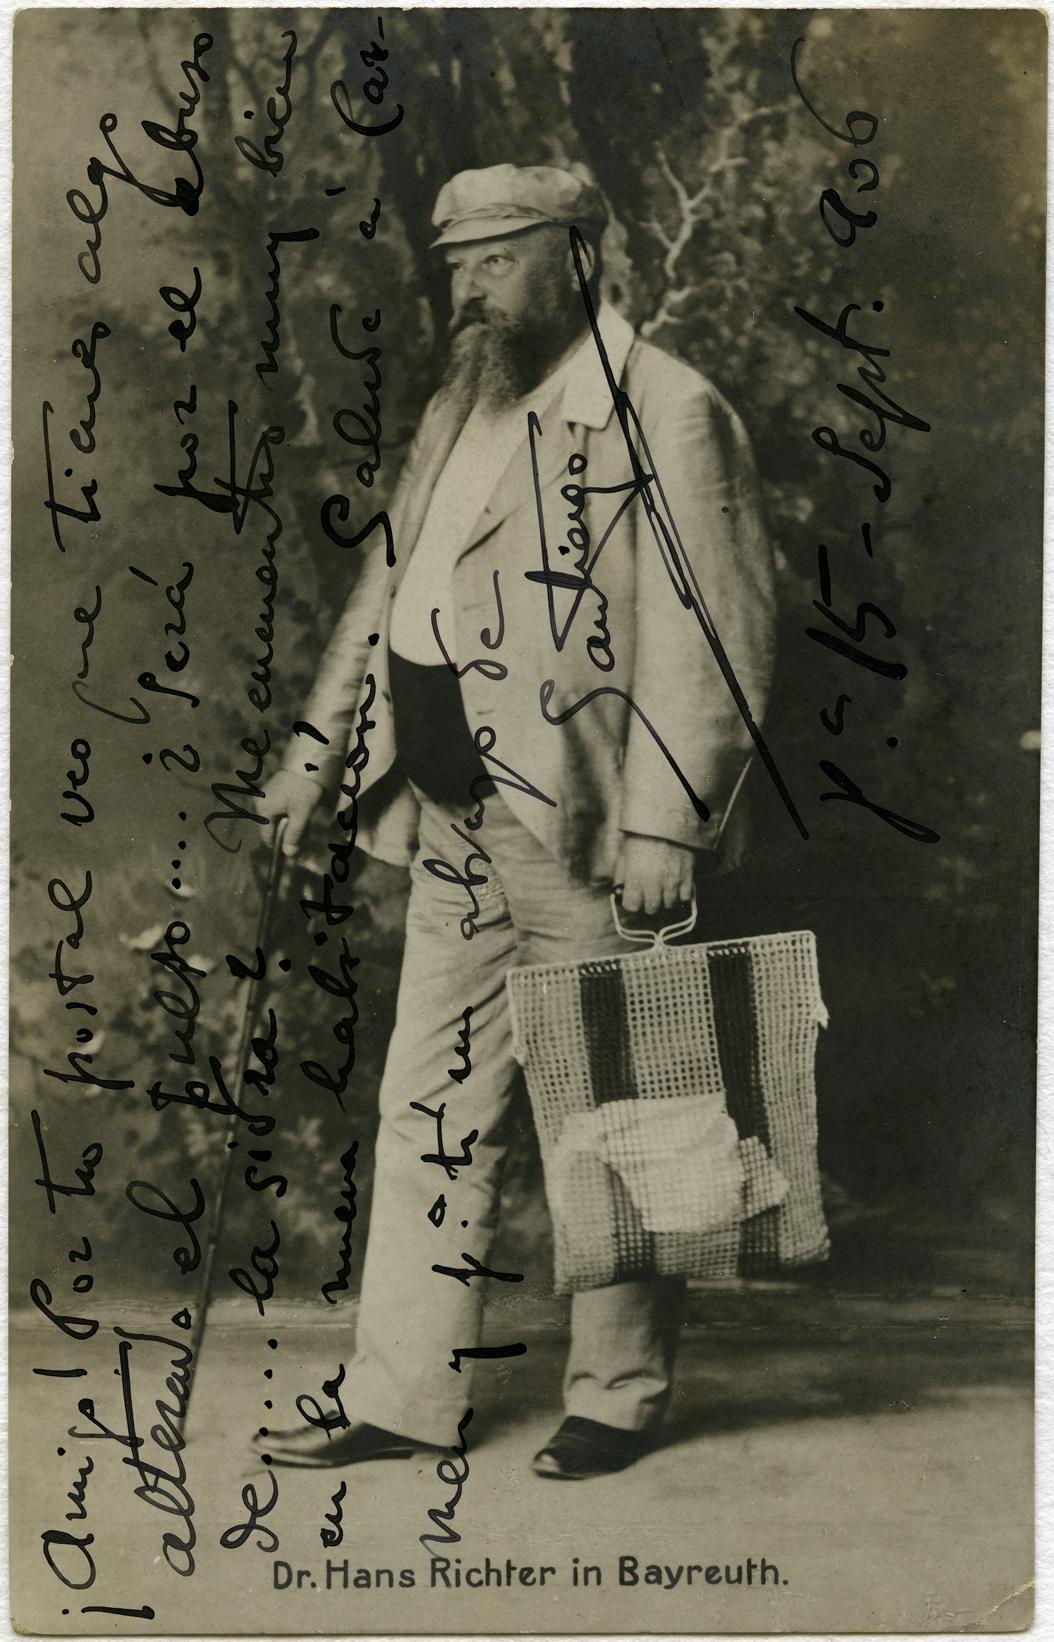 ¡Amigo! Por tu postal veo que tienes algo
alterado el pulso... ¿Será por el abuso
de..... la sidra? Me encuentro muy bien
en la nueva habitación. Saluda á Car-
men y á tí un abrazo de
Santiago
y á 15-Sept. 906
Dr. Hans Richter in Bayreuth.